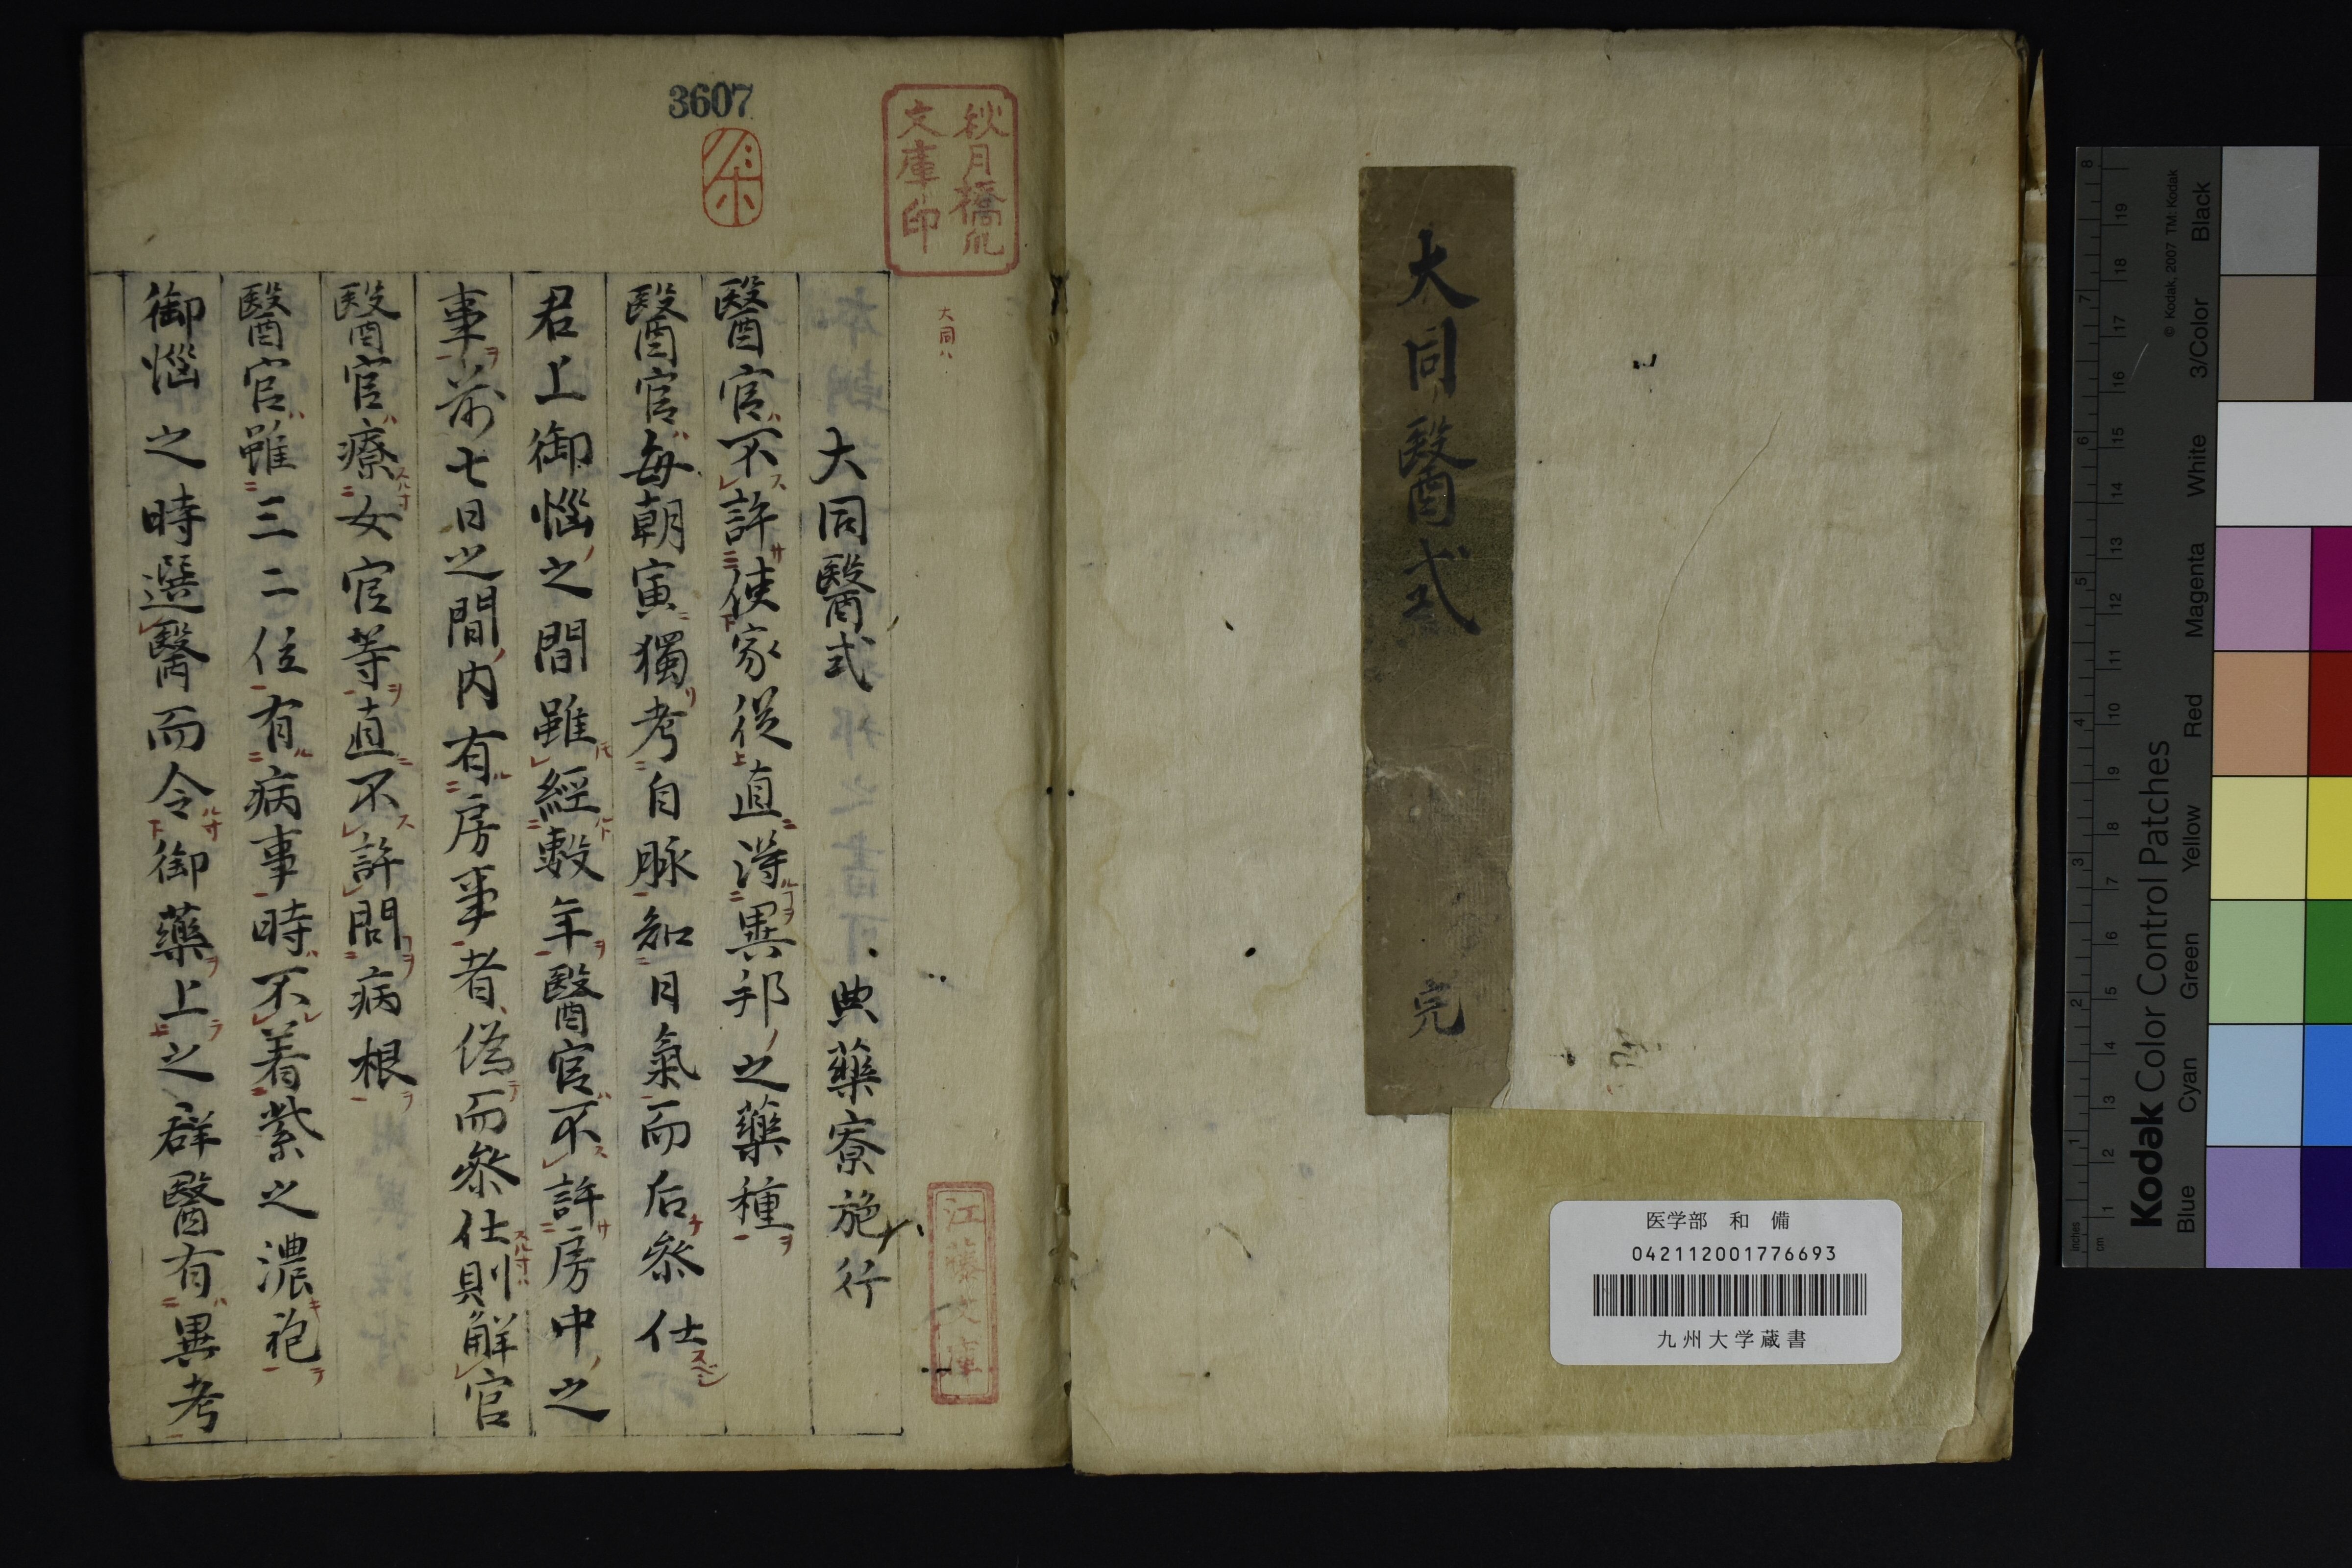 大同醫式
完
医学部 和 備
042112001776693
九州大学蔵書
3607
秋月橋爪
文庫印
江藤文庫
大同ハ
大同醫式 典藥寮施行
醫官不許使家從直得異邦之藥種
醫官每朝寅獨考自脉知日氣而后參仕
君上御惱之間雖經數年醫官不許房中之
事前七日之間内有房事者偽而參仕則解官
醫官療女官等直不許問病根
醫官雖三二位有病事時不着紫之濃袍
御惱之時選醫而令御藥上之群醫有異考
Kodak Color Control Patches
© Kodak, 2007 TM: Kodak
Blue Cyan Green Yellow Red Magenta White 3/Color Black
inches 1 2 3 4 5 6 7 8
cm 1 2 3 4 5 6 7 8 9 10 11 12 13 14 15 16 17 18 19